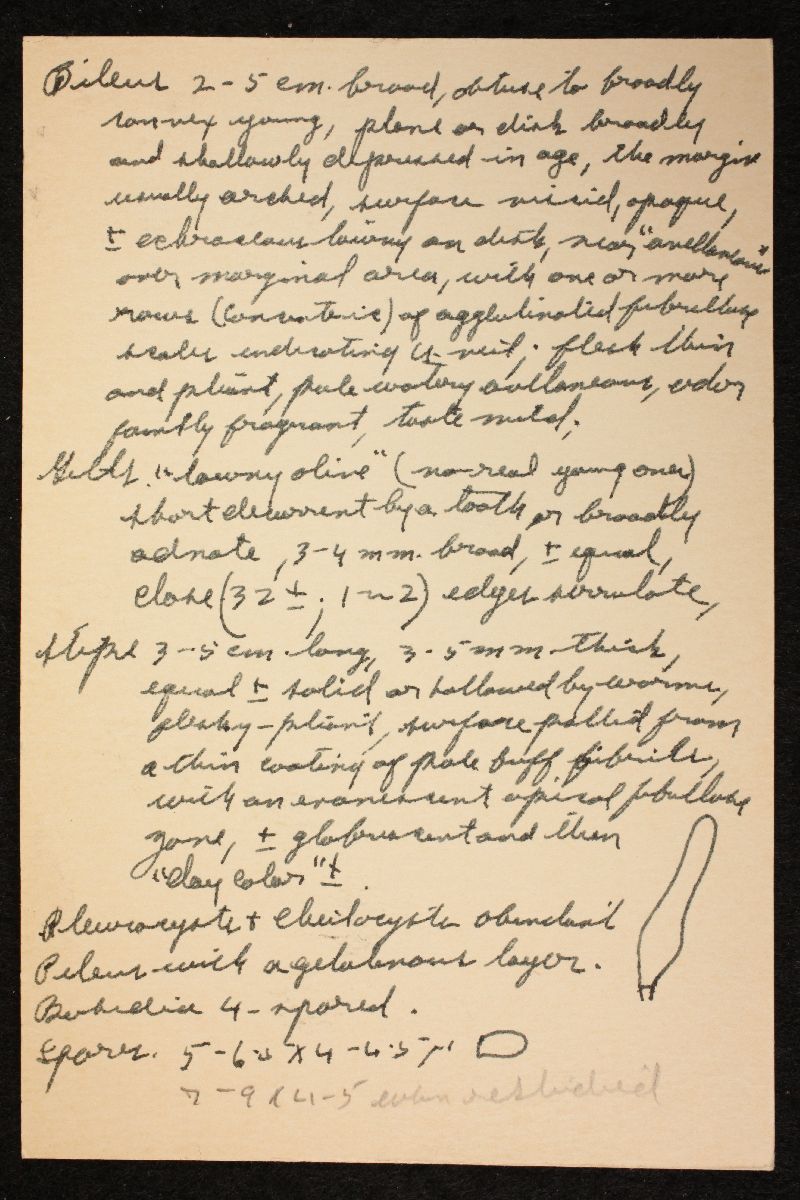 Pileus 2-5 cm. broad, obtuse to broadly
convex young, plane or disk broadly
and shallowly depressed in age, the margin
usually arched, surface viscid, opaque,
± ochraceous tawny on disk, near "avellaneous"
over marginal area, with one or more
rows (concentric) of agglutinated fibrillose
scales indicating a veil; flesh thin
and pliant, pale watery avellaneous, odor
faintly fragrant, taste mild.
Gills "tawny olive" (no real young ones)
short decurrent by a tooth or broadly
adnate, 3-4 mm. broad, ± equal,
close (32 ±; 1-2) edges serrulate,
Stipe 3-5 cm. long, 3-5 mm thick,
equal ± solid or hollowed by worms,
fleshy-pliant, surface pallid from
a thin coating of pale buff fibrils,
with an evanescent apical fibrillose
zone, ± glabrescent and then
"clay color" ±.
Pleurocysts + Cheilocysts abundant
Pileus with a gelatinous layer.
Basidia 4-spored.
Spores. 5-6.5 x 4-4.5 µ
7-9 x 4-5 when